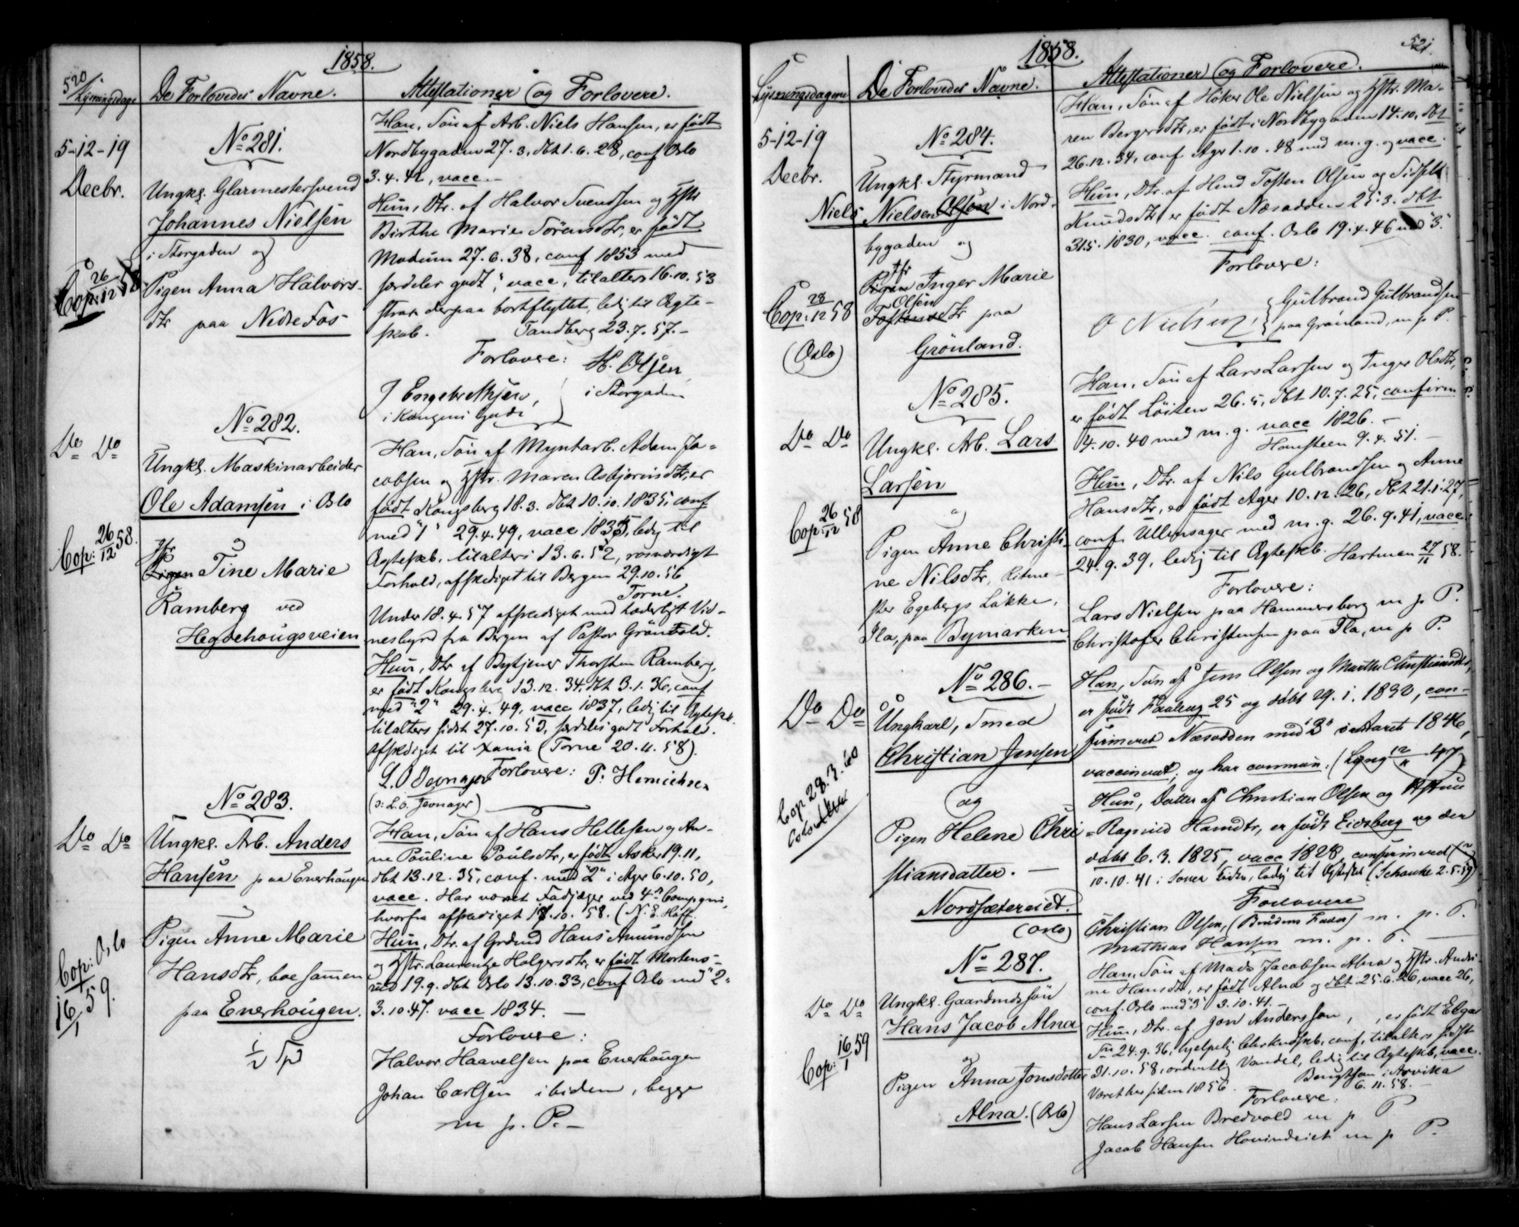 520
1858.
Lysningsdage
De Forlovedes Navne.
Attestationer og Forlovere.
5-12-19
Decbr.
No 281.
Ungkl. Glarmestersvend
Johannes Nielsen
i Storgaden og
Pigen Anna Halvors-
dtr paa Nedre Fos
Cop: 26/12 58
Han, Søn af Arb. Niels Hansen, er født
Nordbygaden 27.3, dbt 1.6.28, conf Oslo
3.4.42, vacc.
Hun, Dtr. af Halvor Svendsen og Hstr
Birthe Marie Sørensdtr, er født
Modum 27.6.38, conf 1853 med
særdeles godt, vacc, tilalters 16.10.53
strax derpaa bortflyttet, ledig til Ægte-
skab. Tandberg 23.7.57.-
Forlovere:
H. Olsen,
i Storgaden
J Engebrethsen,
i Kongens Gade
No 282.
Do Do
Ungkl. Maskinarbeider
Ole Adamsen i Oslo
og
Pigen Tine Marie
Ramberg ved
Hegdehougsveien
Cop: 26/12 58.
Han, Søn af Myntarb. Adam Ja-
cobsen og Hstr. Maren Asbjørnsdtr, er
født Kongsberg 18.3. dbt 10.10.1835, conf
med "1" 29.4.49, vacc 1835, ledig til
Ægteskab. tilalters 13.6.52, rosværdigt
Forhold, afskediget til Bergen 29.10.56
Torne.
Under 18.4.57 afskediget med hæderligt Vid-
nesbyrd fra Bergen af Pastor Grönvold.
Hun, Dtr af Bytjener Thorsten Ramberg,
er født Kongsberg 13.12.34. dbt 3.1.36, conf
med "2" 29.4.49, vacc 1837, ledig til Ægtesk.
tilalters sidst 27.10.53, særdeles godt Forhold.
afskediget til Xania (Torne 20.11.58)
Forlovere:
L O Jevnager
P. Henrichsen
(o: L. O. Jevnager)
No 283.
Do Do
Ungkl. Arb. Anders
Hansen paa Enerhougen
og
Pigen Anne Marie
Hansdtr, boe sammen
paa Enerhougen.
Cop: Oslo
16/1 59.
Han, Søn af Hans Hellesen og An-
ne Pauline Paulsdtr, er født Asker 19.11,
dbt 13.12.35, conf. med "2" i Ager 6.10.50,
vacc. Har været Fodjæger ved 4de Compagni,
hvorfra afskediget 18.10.58. (N. E. Hoff)
Hun, Dtr. af Grdmd Hans Amundsen
og Hstr. Laurentze Holgersdtr, er født Mortens-
rud 19.9. dbt Oslo 13.10.33, conf Oslo med "2"
3.10.47. vacc 1834.
Forlovere:
Halvor Haavelsen paa Enerhougen
Johan Carlsen ibidem, begge
m. p. P.-
521.
1858.
Lysningsdagene
De Forlovedes Navne.
Attestationer og Forlovere.
5-12-19
Decbr.
No 284.
Ungkl. Styrmand
Niels Nielsen Olsen i Nord-
bygaden og
Pigen Inger Marie
Olsen
Tostensdtr paa
Grönland.
Cop: 28/12 58
(Oslo)
Han, Søn af Høker Ole Nielsen og Hstr. Ma-
ren Bergersdtr, er født i Nordbygaden 14.10, dbt
26.12.34, conf Ager 1.10.48 med m.g. og vacc.
Hun, Dtr. af Hmd Tosten Olsen og
Knudsdtr, er født Næsodden 25.3. dbt
31.5.1830, vacc. conf. Oslo 19.4.46 med "3"
Forlovere:
O Nielsen,
Gulbrand Gulbrandsen
paa Grönland, m. p. P.
No 285.
Do Do
Ungkl. Arb. Lars
Larsen
og
Pigen Anne Christi-
ne Nilsdtr,
Egebergs Løkke,
Ila, paa Bymarken
Cop: 26/12 58
Han, Søn af Lars Larsen og Inger Olsdtr,
er født Løiten 26.5, dbt 10.7.25, confirm
4.10.40 med m.g. vacc 1826.-
Hansteen 9.4.51.-
Hun, Dtr. af Nils Gulbrandsen og Anne
Hansdtr, er født Ager 10.12.26, dbt 21.1.27,
conf. Ullensager med m.g. 26.9.41, vacc
24.9.39, ledig til Ægteskab. Hartman 27/11 58.
Forlovere:
Lars Nielsen paa Hammersborg m p P.
Christofer Christensen paa Ila, m p P.
No 286.-
Do Do
Ungkarl, Smed
Christian Jensen
og
Pigen Helene Chri-
stiansdatter.-
Nordsætereiet.
(Oslo)
Cop 28.3.60
Han, Søn af Jens Olsen og Marthe Christiansdtr,
er født 25 og døbt 29.1.1832, con-
firmeret Næsodden med "3" i Aaret 1846,
vaccineret, og har commun. (Lyng 12/11 47)
Hun, Datter af Christian Olsen og Hstru
Ragnild Hansdtr, er født Eidsberg og der
døbt 6.3.1825, vacc 1828, confirmeret
10.10.41, ledig til Ægteskab (Schanke 2.5.59)
Forlovere
Christian Olsen, (Brudens Fader) m. p. P.
Mathias Hansen m. p. P.
No 287.
Do Do
Ungkl. Gaardmdssøn
Hans Jacob Alna
og
Pigen Anna Jonsdatter
Alna. (Oslo)
Cop: 16/1 59
Han, Søn af Mads Jacobsen Alna og Hstr. Andri-
ne Hansdtr, er født Alna og dbt 25.6.26, vacc 26,
conf. Oslo med "3" 3.10.41.
Hun, Dtr. af Jon Andersson, er født Elgaa
24.9.36, hjelpelig Chrkndskab, conf, tilalters sidst
31.10.58, ordentlig Vandel, ledig til Ægteskab, vacc.
Været her siden 1856. Bengtson i Arvika
6.11.58.-
Forlovere:
Hans Larsen Bredvold m p P
Jacob Hansen Hovindeiet m p P.